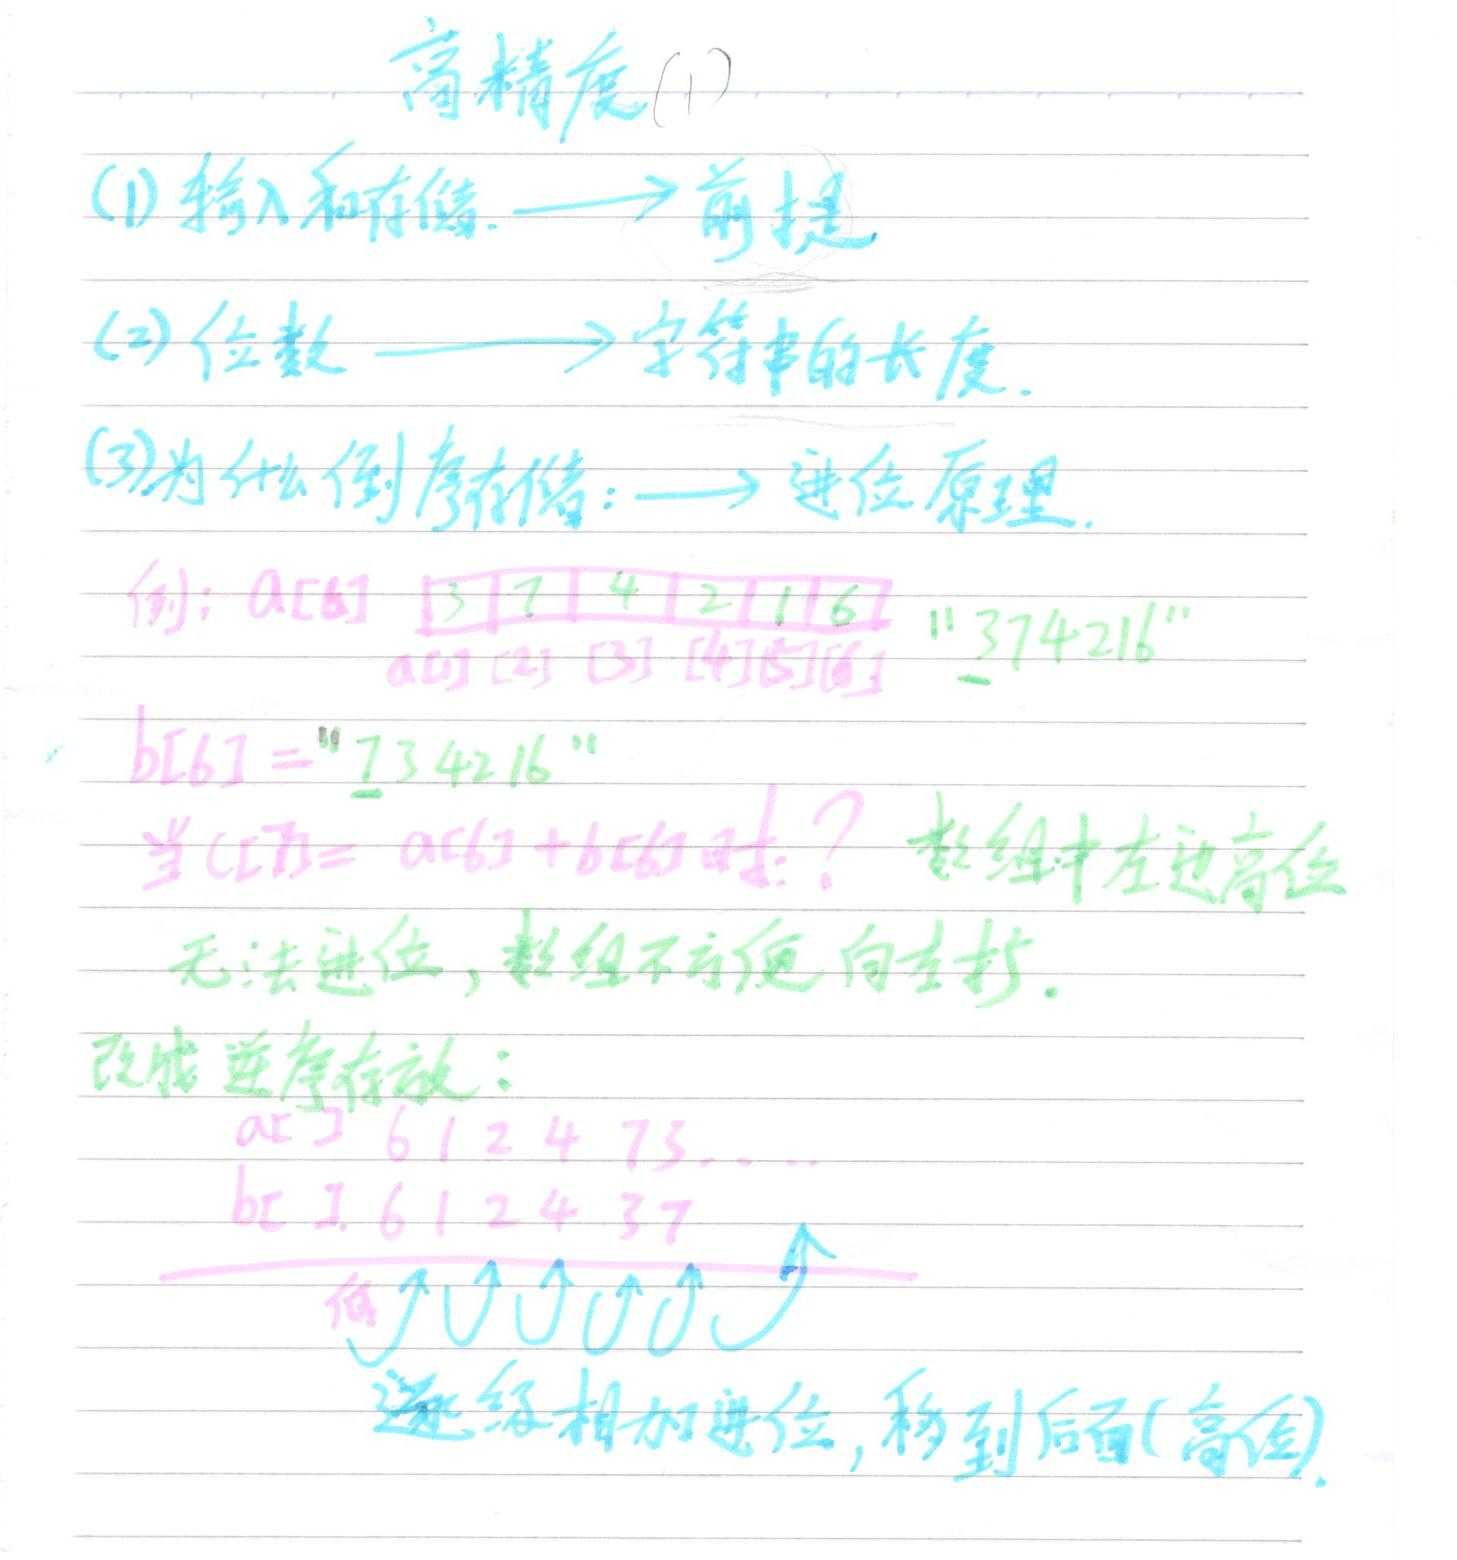 高精度(1)
(1) 输入和存储. → 前提
(2) 位数 → 字符串的长度.
(3)为什么倒序存储: → 进位原理.
例: a[6] 3 7 4 2 1 6 "374216"
a[1] [2] [3] [4] [5] [6]
b[6] = "734216"
当c[7]= a[6]+b[6]时:? 数组中左边高位
无法进位,数组不方便向左扩.
改成逆序存放:
a[ ] 6 1 2 4 7 3.....
b[ ]. 6 1 2 4 3 7
低
逐级相加进位,移到后面(高位).